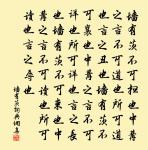 墻有茨不可掃也中冓
之言不可道也所可道
也言之丑也墻有茨不
可襄也中冓之言不可
詳也所可詳也言之長
也墻有茨不可束也中
冓之言不可讀也所可
讀也言之辱也
墻有茨詞典網集